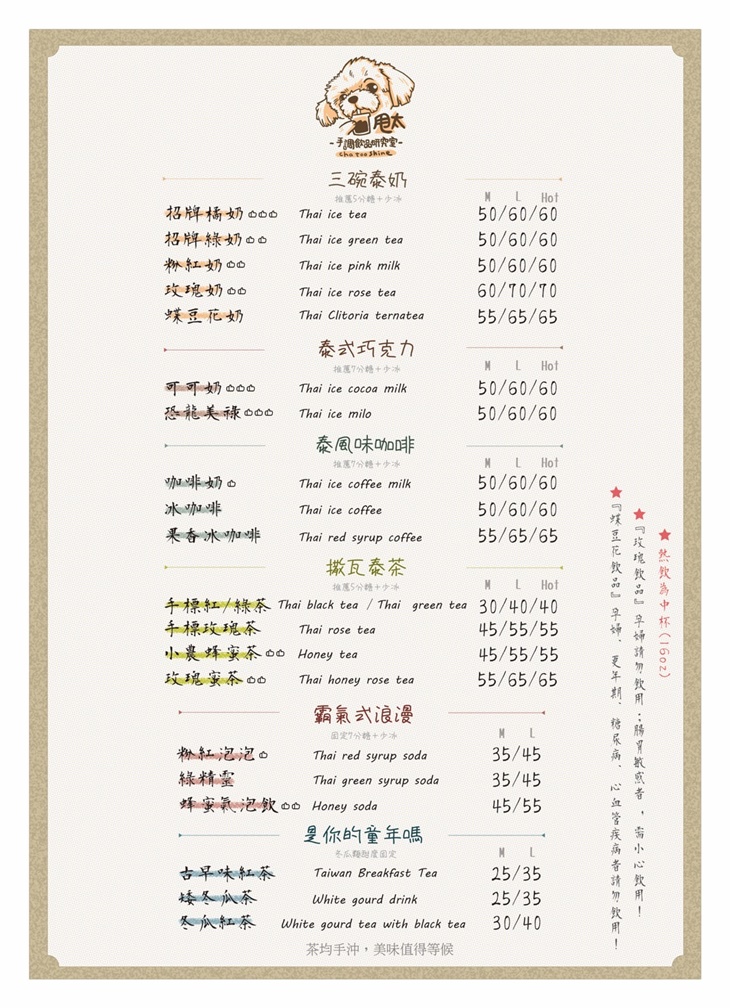 甩太
-手調飲品研究室-
cha too shine
三碗泰奶
推薦5分糖+少冰
M L Hot
招牌橘奶 Thai ice tea 50/60/60
招牌綠奶 Thai ice green tea 50/60/60
粉紅奶 Thai ice pink milk 50/60/60
玫瑰奶 Thai ice rose tea 60/70/70
蝶豆花奶 Thai Clitoria ternatea 55/65/65
泰式巧克力
推薦7分糖+少冰
M L Hot
可可奶 Thai ice cocoa milk 50/60/60
恐龍美祿 Thai ice milo 50/60/60
泰風味咖啡
推薦7分糖+少冰
M L Hot
咖啡奶 Thai ice coffee milk 50/60/60
冰咖啡 Thai ice coffee 50/60/60
果香冰咖啡 Thai red syrup coffee 55/65/65
撒瓦泰茶
推薦5分糖+少冰
M L Hot
手標紅/綠茶 Thai black tea / Thai green tea 30/40/40
手標玫瑰茶 Thai rose tea 45/55/55
小農蜂蜜茶 Honey tea 45/55/55
玫瑰蜜茶 Thai honey rose tea 55/65/65
霸氣式浪漫
固定7分糖+少冰
M L
粉紅泡泡 Thai red syrup soda 35/45
綠精靈 Thai green syrup soda 35/45
蜂蜜氣泡飲 Honey soda 45/55
是你的童年嗎
冬瓜類甜度固定
M L
古早味紅茶 Taiwan Breakfast Tea 25/35
矮冬瓜茶 White gourd drink 25/35
冬瓜紅茶 White gourd tea with black tea 30/40
茶均手沖，美味值得等候
★熱飲為中杯(16oz)
★『玫瑰飲品』孕婦請勿飲用；腸胃敏感者，需小心飲用！
★『蝶豆花飲品』孕婦、更年期、糖尿病、心血管疾病者請勿飲用！